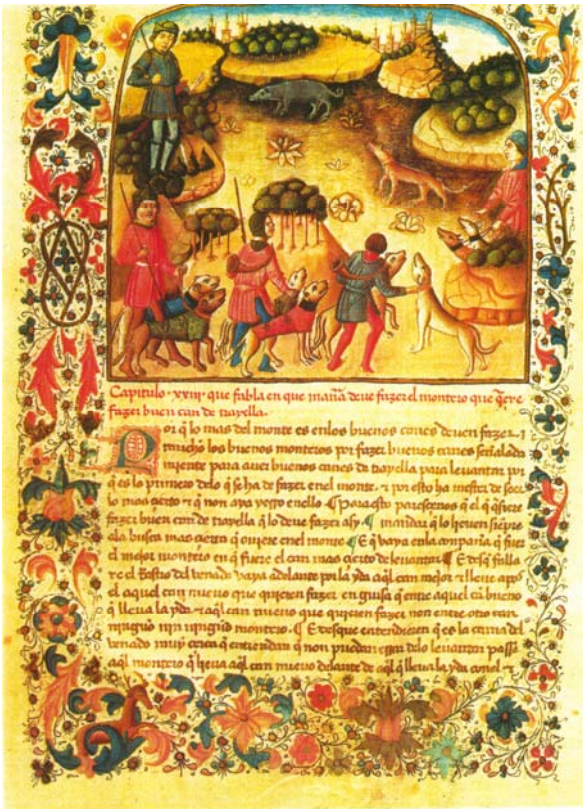 Capitulo · xxiij · que fabla en que maña deue fazer el montero que q̃re
fazer buen can de trayella.
Por q̃ lo mas del monte es enlos buenos canes deuen fazer
mucho los buenos monteros por fazer buenos canes señalada
miente para auer buenos canes de trayella para leuantar por
q̃ es lo primero delo q̃ se ha de fazer enel monte. ⁊ por esto ha mester de seer
lo mas çierto ⁊ q̃ non aya yerro enello ¶ Para esto paresçenos q̃ el q̃ q̃siere
fazer buen can de trayella q̃ lo deue fazer asy ¶ mandar q̃ lo lieuen sienpre
ala busca mas çierta q̃ ouiere enel monte ¶ E q̃ vaya enla conpañia q̃ fuere
el mejor montero en q̃ fuere el can mas çierto de leuantar ¶ E desq̃ falla
re el Rastro del venado vaya adelante por la yda aq̃l can mejor ⁊ lieue apos
el aquel can nueuo que quieren fazer en guisa q̃ entre aquel cã bueno
q̃ lleua la yda ⁊ aq̃l can nueuo que quieren fazer non entre otro can
ningũo nin ningũd montero. ¶ E desque entendieren q̃ es la cama del
venado muy çerca q̃ entiendan q̃ non puedan errar delo leuantar passe
aq̃l montero q̃ lieua aq̃l can nueuo delante de aq̃l q̃ lleua la yda conel ⁊